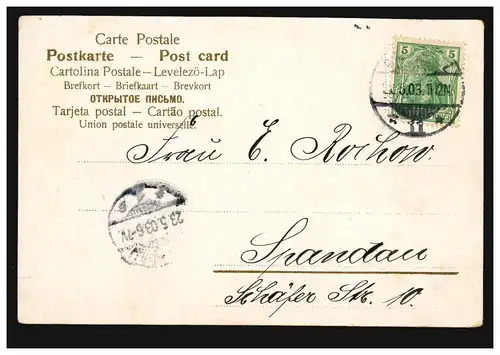 Carte Postale
Postkarte — Post card
Cartolina Postale — Levelező-Lap
Brefkort — Briefkaart — Brevkort
ОТКРЫТОЕ ПИСЬМО.
Tarjeta postal — Cartão postal.
Union postale universelle.
5 5
.03. 11-12N
Frau E. Rochow.
23.5.03.6-7V
Spandau
Schäfer Str. 10.